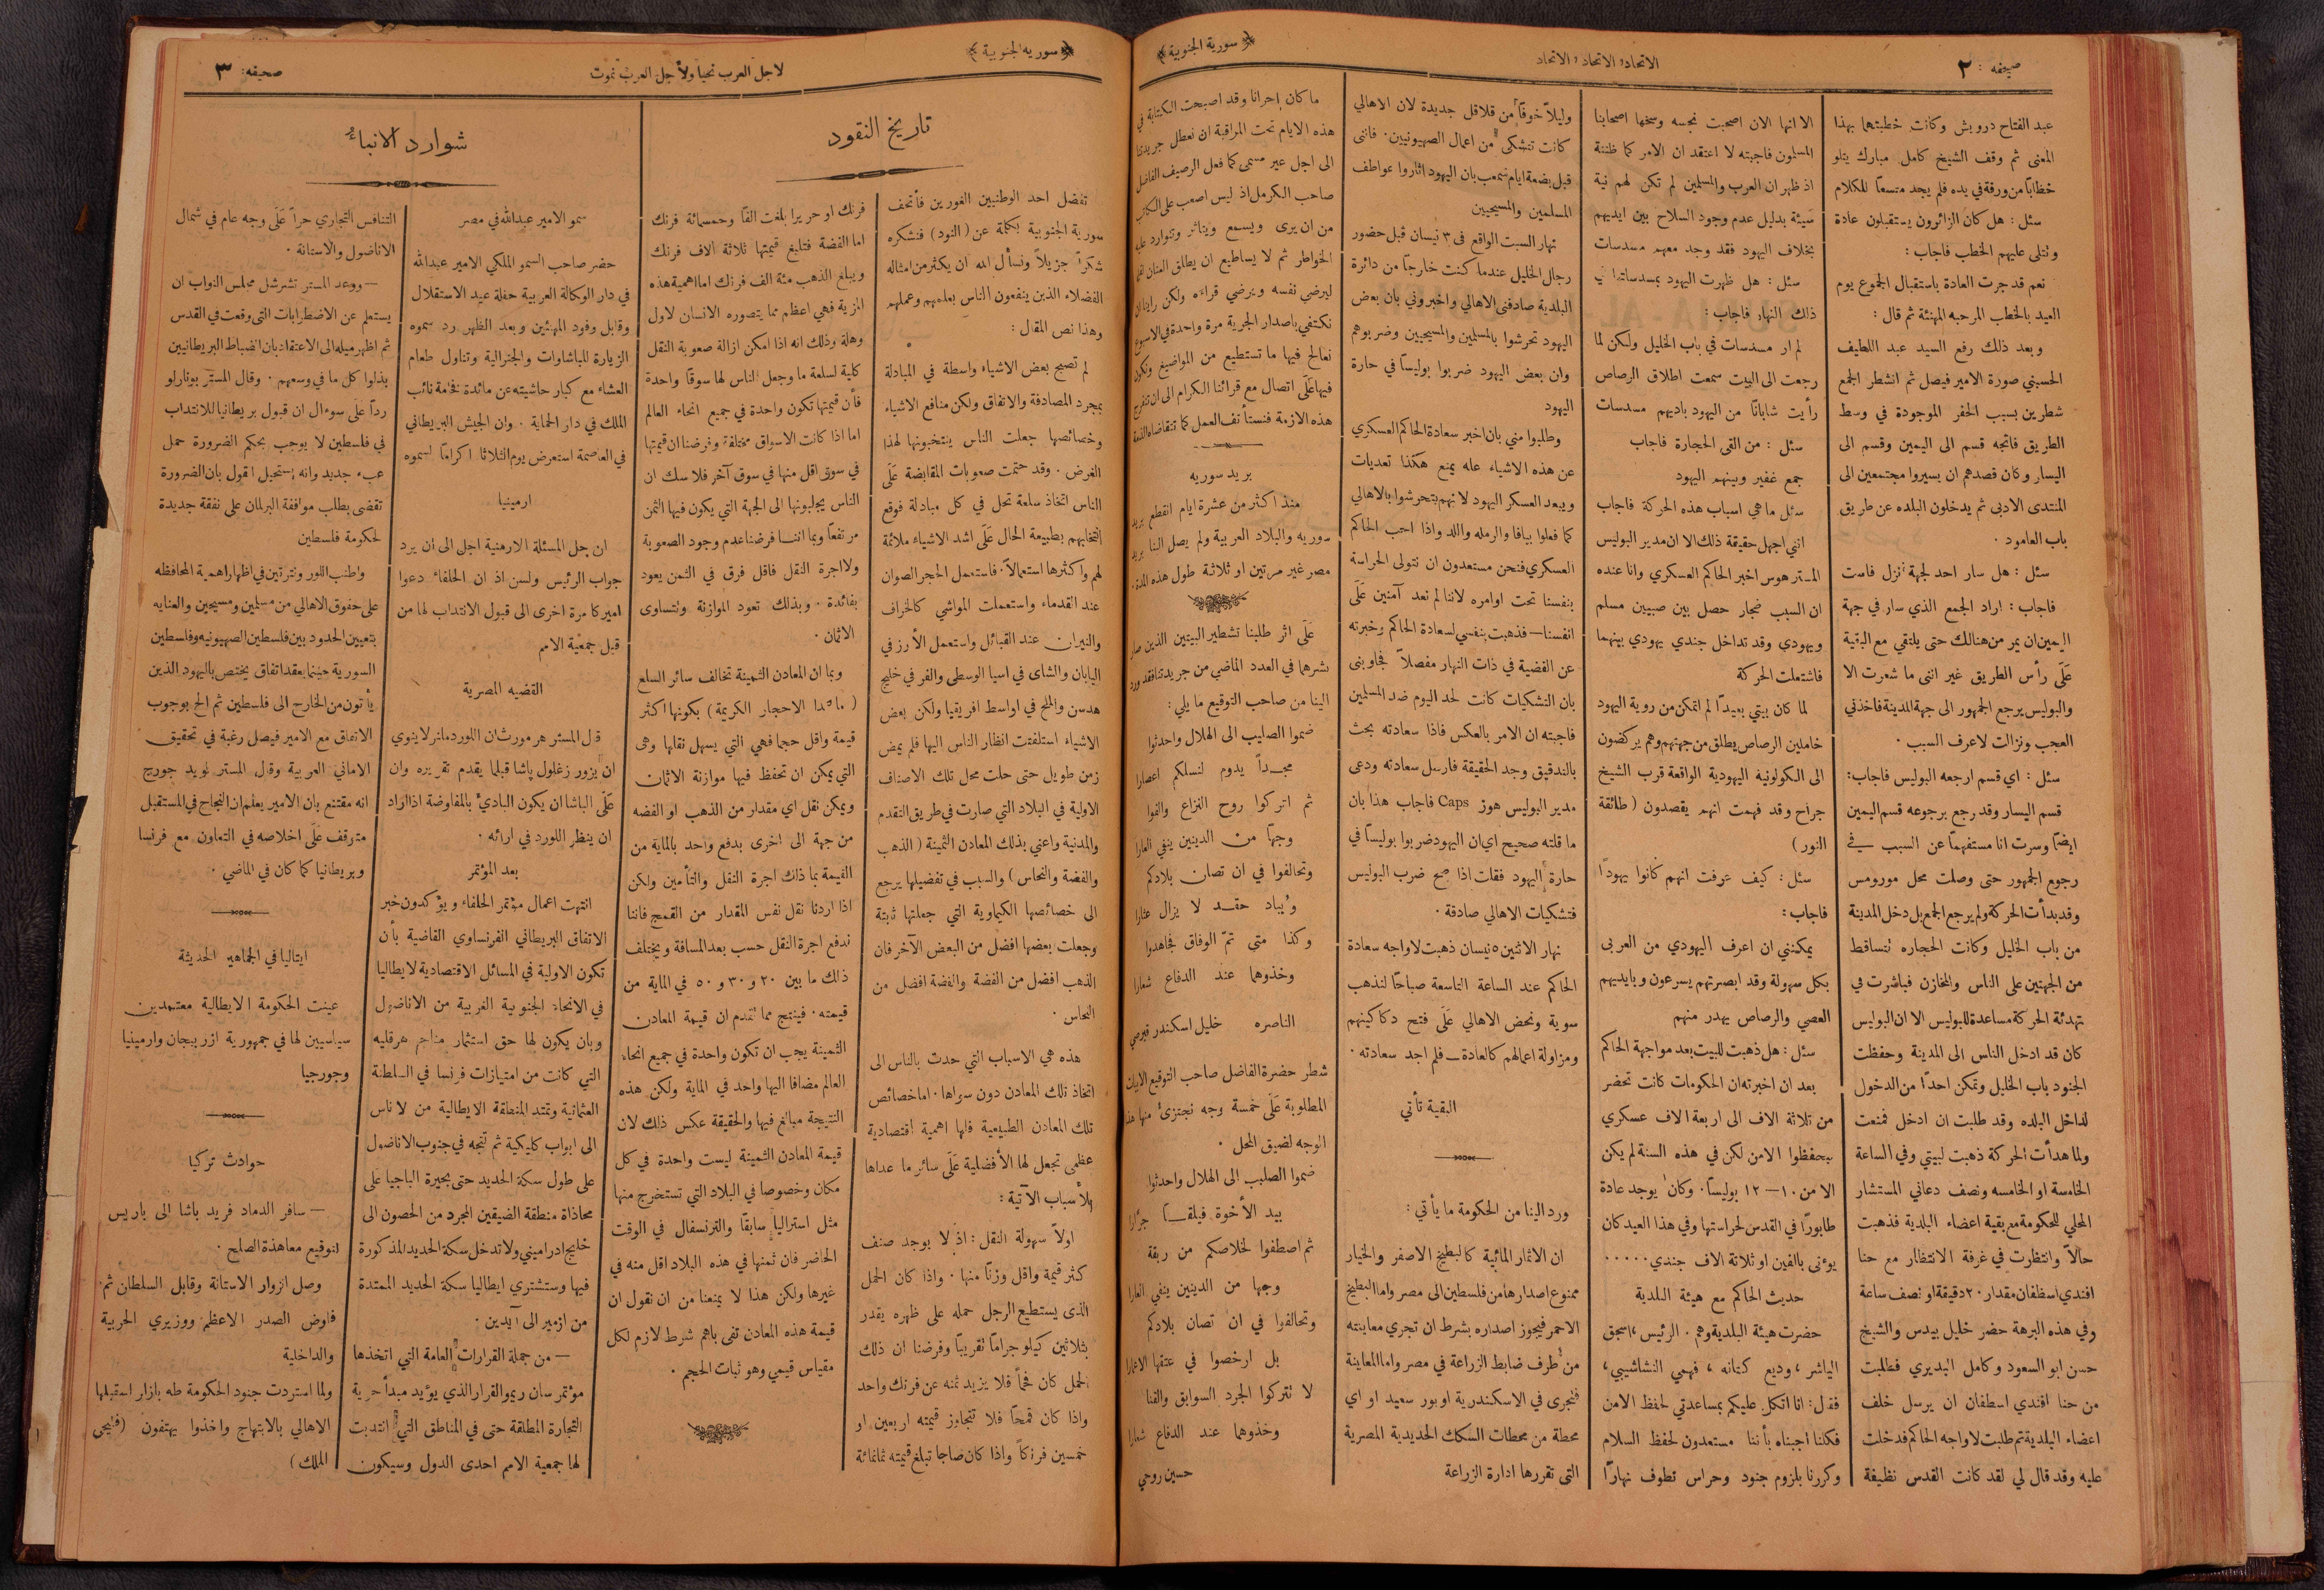 صحيفه : ٢
الاتحاد، الاتحاد، الاتحاد
﴿ سورية الجنوبية ﴾
عبد الفتاح درويش وكانت خطبتهما بهذا
المعنى ثم وقف الشيخ كامل مبارك يتلو
خطاباً من ورقة في يده فلم يجد متسعاً للكلام
سئل : هل كان الزائرون يستقبلون عادة
وتتلى عليهم الخطب فاجاب :
نعم قد جرت العادة باستقبال الجموع يوم
العيد بالخطب المرحبه المهنئة ثم قال :
وبعد ذلك رفع السيد عبد اللطيف
الحسيني صورة الامير فيصل ثم انشطر الجمع
شطرين بسبب الحفر الموجودة في وسط
الطريق فاتجه قسم الى اليمين وقسم الى
اليسار وكان قصدهم ان يسيروا مجتمعين الى
المنتدى الادبى ثم يدخلون البلده عن طريق
باب العامود .
سئل : هل سار احد لجهة نزل فاست
فاجاب : اراد الجمع الذي سار في جهة
اليمين ان يمر من هنالك حتى يلتقي مع البقية
عَلَى رأس الطريق غير اننى ما شعرت الا
والبوليس يرجع الجمهور الى جهة المدينة فاخذني
العجب ونزلت لاعرف السبب .
سئل : اي قسم ارجعه البوليس فاجاب :
قسم اليسار وقد رجع برجوعه قسم اليمين
ايضاً وسرت انا مستفهماً عن السبب في
رجوع الجمهور حتى وصلت محل مورومس
وقد بدأت الحركة ولم يرجع الجمع بل دخل المدينة
من باب الخليل وكانت الحجاره تتساقط
من الجهتين على الناس والمخازن فباشرت في
تهدئة الحركة مساعدة للبوليس الا ان البوليس
كان قد ادخل الناس الى المدينة وحفظت
الجنود باب الخليل وتمكن احداً من الدخول
لداخل البلده وقد طلبت ان ادخل فمنعت
ولما هدأت الحركة ذهبت لبيتي وفي الساعة
الخامسة او الخامسه ونصف دعاني المستشار
المحلي للحكومة مع بقية اعضاء البلدية فذهبت
حالاً وانتظرت في غرفة الانتظار مع حنا
افندي اسطفان مقدار ٢٠ دقيقة او نصف ساعة
وفي هذه البرهة حضر خليل بيدس والشيخ
حسن ابو السعود وكامل البديري فطلبت
من حنا افندي اسطفان ان يرسل خلف
اعضاء البلدية ثم طلبت لاواجه الحاكم فدخلت
عليه وقد قال لي لقد كانت القدس نظيفة
الا انها الان اصبحت نجسه وسخها اصحابنا
المسلمون فاجبته لا اعتقد ان الامر كما ظننة
اذ ظهر ان العرب والمسلمين لم تكن لهم نية
سَيئة بدليل عدم وجود السلاح بين ايديهم
بخلاف اليهود فقد وجد معهم مسدسات
سئل : هل ظهرت اليهود بمسدساتها في
ذلك النهار فاجاب :
لم ار مسدسات في باب الخليل ولكن لما
رجعت الى البيت سمعت اطلاق الرصاص
رأيت شابانا من اليهود باديهم مسدسات
سئل : من القى الحجارة فاجاب
جمع غفير وبينهم اليهود
سئل ما هي اسباب هذه الحركة فاجاب
انني اجهل حقيقة ذلك الا ان مدير البوليس
المستر هوس اخبر الحاكم العسكري وانا عنده
ان السبب ضجار حصل بين صبيين مسلم
ويهودي وقد تداخل جندي يهودي بينهما
فاشتعلت الحركة
لما كان بيتي بعيداً لم اتمكن من روية اليهود
حاملين الرصاص يطلق من جهتهم وهم يركضون
الى الكولونيه اليهودية الواقعة قرب الشيخ
جراح وقد فهمت انهم يقصدون ( طائفة
النور )
سئل : كيف عرفت انهم كانوا يهوداً
فاجاب :
يمكنني ان اعرف اليهودي من العربى
بكل سهولة وقد ابصرتهم يسرعون وبايديهم
العصي والرصاص يهدر منهم
سئل : هل ذهبت للبيت بعد مواجهة الحاكم
بعد ان اخبرته ان الحكومات كانت تحضر
من ثلاثة الاف الى اربعة الاف عسكري
ليحفظوا الامن لكن في هذه السنة لم يكن
الا من ١٠ — ١٢ بوليساً . وكان يوجد عادة
طابوراً في القدس لحراستها وفي هذا العيد كان
يوئى بالفين او ثلاثة الاف جندي . . . . .
حديث الحاكم مع هيئة البلدية
حضرت هيئة البلدية وهم . الرئيس ، اسحق
الياشر ، وديع كتانه ، فهمي النشاشيبي ،
فقال : انا اتكل عليكم بمساعدتي لحفظ الامن
فكلنا اجبناه بأننا مستعدون لحفظ السلام
وكررنا بلزوم جنود وحراس تطوف نهاراً
وليلاً خوفاً من قلاقل جديدة لان الاهالي
كانت تتشكى من اعمال الصهيونيين . فاننى
قبل بضعة ايام سمعت بان اليهود اثاروا عواطف
المسلمين والمسيحيين
نهار السبت الواقع في ٣ نيسان قبل حضور
رجال الخليل عندما كنت خارجاً من دائرة
البلدية صادفنى الاهالي واخبروني بان بعض
اليهود تحرشوا بالمسلمين والمسيحيين وضربوهم
وان بعض اليهود ضربوا بوليساً في حارة
اليهود
وطلبوا منى بان اخبر سعادة الحاكم العسكري
عن هذه الاشياء عله يمنع هكذا تعديات
ويبعد العسكر اليهود لانهم يتحرشوا بالاهالي
كما فعلوا بيافا والرمله واللد واذا احب الحاكم
العسكري فنحن مستعدون ان نتولى الحراسة
بنفسنا تحت اوامره لاننا لم نعد آمنين عَلَى
انفسنا — فذهبت بنفسي لسعادة الحاكم وخبرته
عن القضية في ذات النهار مفصلاً فجاوبنى
بان التشكيات كانت لحد اليوم ضد المسلمين
فاجبته ان الامر بالعكس فاذا سعادته بحث
بالتدقيق وجد الحقيقة فارسل سعادته ودعى
مدير البوليس هوز Caps فاجاب هذا بان
ما قلته صحيح اي ان اليهود ضربوا بوليساً في
حارة اليهود فقلت اذا صح ضرب البوليس
فتشكيات الاهالي صادقة .
نهار الاثنين ٥ نيسان ذهبت لاواجه سعادة
الحاكم عند الساعة التاسعة صباحاً لنذهب
سوية ونحض الاهالي عَلَى فتح دكاكينهم
ومزاولة اعمالهم كالعادة — فلم اجد سعادته .
البقية تأتي
ورد الينا من الحكومة ما يأتي :
ان الاثمار المائية كالبطيخ الاصفر والخيار
ممنوع اصدارها من فلسطين الى مصر واما البطيخ
الاحمر فيجوز اصداره بشرط ان تجري معاينته
من طرف ضابط الزراعة في مصر واما المعاينة
فتجرى في الاسكندرية او بور سعيد او اي
محطة من محطات السكك الحديدية المصرية
التى تقررها ادارة الزراعة
ما كان احرانا وقد اصبحت الكتابة في
هذه الايام تحت المراقبة ان نعطل جريدتنا
الى اجل غير مسمى كما فعل الرصيف الفاضل
صاحب الكرمل اذ ليس اصعب على الكاتب
من ان يرى ويسمع ويتاثر وتتوارد عليه
الخواطر ثم لا يساطيع ان يطلق العنان
ليرضي نفسه ويرضي قراءه ولكن راينا ان
نكتفي باصدار الجرية مرة واحدة في الاسبوع
نعالج فيها ما تستطيع من المواضيع ونكون
فيها عَلَى اتصال مع قرائنا الكرام الى ان تنفرج
هذه الازمة فنستأنف العمل كما تتقاضاه الذمة
بريد سوريه
منذ اكثر من عشرة ايام انقطع بريد
سوريه والبلاد العربية ولم يصل الينا بريد
مصر غير مرتين او ثلاثة طول هذه المدة .
عَلَى اثر طلبنا تشطير البيتين الذين صار
نشرها في العدد الماضي من جريدتنا فقد ورد
الينا من صاحب التوقيع ما يلي :
ضموا الصليب الى الهلال واحدثوا
مجداً يدوم لنسلكم اعصارا
ثم اتركوا روح النزاع والفوا
وجهًا من الدينين ينفي العارا
وتحالفوا في ان تصان بلادكم
ويُباد حقد لا يزال مثارا
وكذا متى تمّ الوفاق فجاهدوا
وخذوهما عند الدفاع شعارا
الناصره خليل اسكندر قبرصي
شطر حضرة الفاضل صاحب التوقيع الابيات
المطلوبة عَلَى خمسة وجه نجتزئ منها هذا
الوجه لضيق المحل .
ضموا الصليب الى الهلال واحدثوا
بيد الأخوة فيلقــاً جرّارا
ثم اصطفوا لخلاصكم من ربقة
وجها من الدينين ينفي العارا
وتحالفوا في ان تصان بلادكم
بل ارخصوا في عتقها الاعمارا
لا تتركوا الجرد السوابق والقنا
وخذوهما عند الدفاع شعارا
حسين روحي
﴿ سوريه الجنوبية ﴾
لاجل العرب نحيا ولأجل العرب نموت
صحيفه : ٣
تاريخ النقود
تفضل احد الوطنيين الغورين فأتحف
سورية الجنوبية بكلمة عن ( النود ) فنشكره
شكراً جزيلاً ونسأل الله ان يكثر من امثاله
الفضلاء الذين ينفعون الناس بعلمهم وعملهم
وهذا نص المقال :
لم تصبح بعض الاشياء واسطة في المبادلة
بمجرد المصادفة والاتفاق ولكن منافع الاشياء
وخصائصها جعلت الناس ينتخبونها لهذا
الغرض . وقد حتمت صعوبات المقايضة عَلَى
الناس اتخاذ سلعة تحل في كل مبادلة فوقع
انتخابهم بطبيعة الحال عَلَى اشد الاشياء ملائمة
لهم واكثرها استعمالاً . فاستعمل الحجر الصوان
عند القدماء واستعملت المواشي كالخراف
والثيران عند القبائل واستعمل الأرز في
اليابان والشاى في اسيا الوسطى والفر في خليج
هدسن والملح في اواسط افريقيا ولكن بعض
الاشياء استلفتت انظار الناس اليها فلم يمض
زمن طويل حتى حلت محل تلك الاصناف
الاولية في البلاد التي صارت في طريق التقدم
والمدنية واعني بذلك المعادن الثمينة ( الذهب
والفضة والنحاس ) والسبب في تفضيلها يرجع
الى خصائصها الكيماوية التي جعلتها ثابتة
وجعلت بعضها افضل من البعض الآخر فان
الذهب افضل من الفضة والفضة افضل من
النحاس .
هذه هي الاسباب التي حدت بالناس الى
اتخاذ تلك المعادن دون سواها . اما خصائص
تلك المعادن الطبيعية فلها اهمية اقتصادية
عظمى تجعل لها الأفضلية عَلَى سائر ما عداها
للأسباب الآتية :
اولاً سهولة النقل : اذ لا يوجد صنف
كثر قيمة واقل وزناً منها . واذا كان الحمل
الذى يستطيع الرجل حمله على ظهره يقدر
بثلاثين كيلوجراماً تقريباً وفرضنا ان ذلك
الحمل كان فحماً فلا يزيد ثمنه عن فرنك واحد
واذا كان قمحاً فلا تتجاوز قيمته اربعين او
خمسين فرنكاً واذا كان صاجا تبلغ قيمته ثمانمائة
فرنك او حريرا بلغت الفاً وخمسمائة فرنك
اما الفضة فتبلغ قيمتها ثلاثة الاف فرنك
ويبلغ الذهب مئة الف فرنك اما اهمية هذه
المزية فهي اعظم مما يتصوره الانسان لاول
وهلة وذلك انه اذا امكن ازالة صعوبة النقل
كلية لسلعة ما وجعل الناس لها سوقاً واحدة
فأن قيمتها تكون واحدة في جميع انحاء العالم
اما اذا كانت الاسواق مختلفة وفرضنا ان قيمتها
في سوق اقل منها في سوق آخر فلا سك ان
الناس يجلبونها الى الجهة التي يكون فيها الثمن
مرتفعاً وبما اننا فرضنا عدم وجود الصعوبة
ولا اجرة النقل فاقل فرق في الثمن يعود
بفائدة . وبذلك تعود الموازنة وتتساوى
الاثمان .
وبما ان المعادن الثمينة تخالف سائر السلع
( ما عدا الاحجار الكريمة ) بكونها اكثر
قيمة واقل حجما فهي التي يسهل نقلها وهى
التي يمكن ان تحفظ فيها موازنة الاثمان
ويمكن نقل اي مقدار من الذهب او الفضه
من جهة الى اخرى بدفع واحد بالماية من
القيمة بما ذلك اجرة النقل والتأمين ولكن
اذا اردنا نقل نفس المقدار من القمح فاننا
ندفع اجرة النقل حسب بعد المسافة ويختلف
ذلك ما بين ٢٠ و ٣٠ و ٥٠ في الماية من
قيمته . فينتج مما تقدم ان قيمة المعادن
الثمينة يجب ان تكون واحدة في جميع انحاء
العالم مضافا اليها واحد في الماية ولكن هذه
النتيجة مبالغ فيها والحقيقة عكس ذلك لان
قيمة المعادن الثمينة ليست واحدة في كل
مكان وخصوصا في البلاد التي تستخرج منها
مثل استراليا سابقاً والترنسفال في الوقت
الحاضر فان ثمنها في هذه البلاد اقل منه في
غيرها ولكن هذا لا يمنعنا من ان نقول ان
قيمة هذه المعادن تفى باهم شرط لازم لكل
مقياس قيمي وهو ثبات الحجم .
شوارد الانباء
سمو الامير عبدالله في مصر
حضر صاحب السمو الملكي الامير عبدالله
في دار الوكالة العربية حفلة عيد الاستقلال
وقابل وفود المهنئين وبعد الظهر رد سموه
الزيارة للباشاوات والجنرالية وتناول طعام
العشاء مع كبار حاشيته عن مائدة فخامة نائب
الملك في دار الحماية . وان الجيش البريطاني
في العاصمة استعرض يوم الثلاثا اكراماً لسموه
ارمينيا
ان حل المسئلة الارمنية اجل الى ان يرد
جواب الرئيس ولسن اذ ان الحلفاء دعوا
اميركا مرة اخرى الى قبول الانتداب لها من
قبل جمعية الامم
القضيه المصرية
قال المستر هرمورث ان اللورد ملنر لا ينوي
ان يزور زغلول پاشا قبلما يقدم تقريره وان
عَلَى الباشا ان يكون البادئ بالمفاوضة اذا اراد
ان ينظر اللورد في ارائه .
بعد المؤتمر
انتهت اعمال مؤتمر الحلفاء ويؤكدون خبر
الاتفاق البريطاني الفرنساوي القاضية بأن
تكون الاولية في المسائل الاقتصادية لايطاليا
في الانحاء الجنوبية الغربية من الاناضول
وبان يكون لها حق استثمار مناجم هرقليه
التي كانت من امتيازات فرنسا في السلطنة
العثمانية وتمتد المنطقة الايطالية من لاناس
الى ابواب كليكية ثم تتجه في جنوب الاناضول
على طول سكة الحديد حتى بحيرة الباجيا على
محاذاة منطقة الضيقين المجرد من الحصون الى
خليج ادراميني ولا تدخل سكة الحديد المذكورة
فيها وستشتري ايطاليا سكة الحديد الممتدة
من ازمير الى آيدين .
— من جملة القرارات العامة التي اتخذها
مؤتمر سان ريمو القرار الذي يؤيد مبدأ حرية
التجارة المطلقة حتى في المناطق التي انتدبت
لها جمعية الامم احدى الدول وسيكون
التنافس التجاري حراً عَلَى وجه عام في شمال
الاناضول والاستانة .
— ووعد المستر تشرشل مجلس النواب ان
يستعلم عن الاضطرابات التى وقعت في القدس
ثم اظهر ميله الى الاعتقاد بان الضباط البريطانيين
بذلوا كل ما في وسعهم . وقال المستر بونارلو
رداً عَلَى سوءال ان قبول بريطانيا للانتداب
في فلسطين لا يوجب بحكم الضرورة حمل
عبء جديد وانه يستحيل القول بان الضرورة
تقضى بطلب موافقة البرلمان على نفقة جديدة
لحكومة فلسطين
واطنب اللور ونترتين في اظهار اهمية المحافظه
على حقوق الاهالي من مسلمين ومسيحيين والعنايه
بتعيين الحدود بين فلسطين الصهيونيه وفلسطين
السورية حينما يعقد اتفاق يختص باليهود الذين
يأتون من الخارح الى فلسطين ثم الح بوجوب
الاتفاق مع الامير فيصل رغبة في تحقيق
الاماني العربية وقال المستر لويد جورج
انه مقتنع بان الامير يعلم ان النجاح في المستقبل
متوقف عَلَى اخلاصه في التعاون مع فرنسا
وبريطانيا كما كان في الماضي .
ايتاليا في الجماهير الحديثة
عينت الحكومة الايطالية معتمدين
سياسيين لها في جمهورية ازربيجان وارمينيا
وجورجيا
حوادث تركيا
— سافر الداماد فريد باشا الى باريس
لتوقيع معاهدة الصلح .
وصل انزوار الاستانة وقابل السلطان ثم
فاوض الصدر الاعظم ووزيري الحربية
والداخلية
ولما استردت جنود الحكومة طه بازار استقبلها
الاهالي بالابتهاج واخذوا يهتفون ( فليحى
الملك )